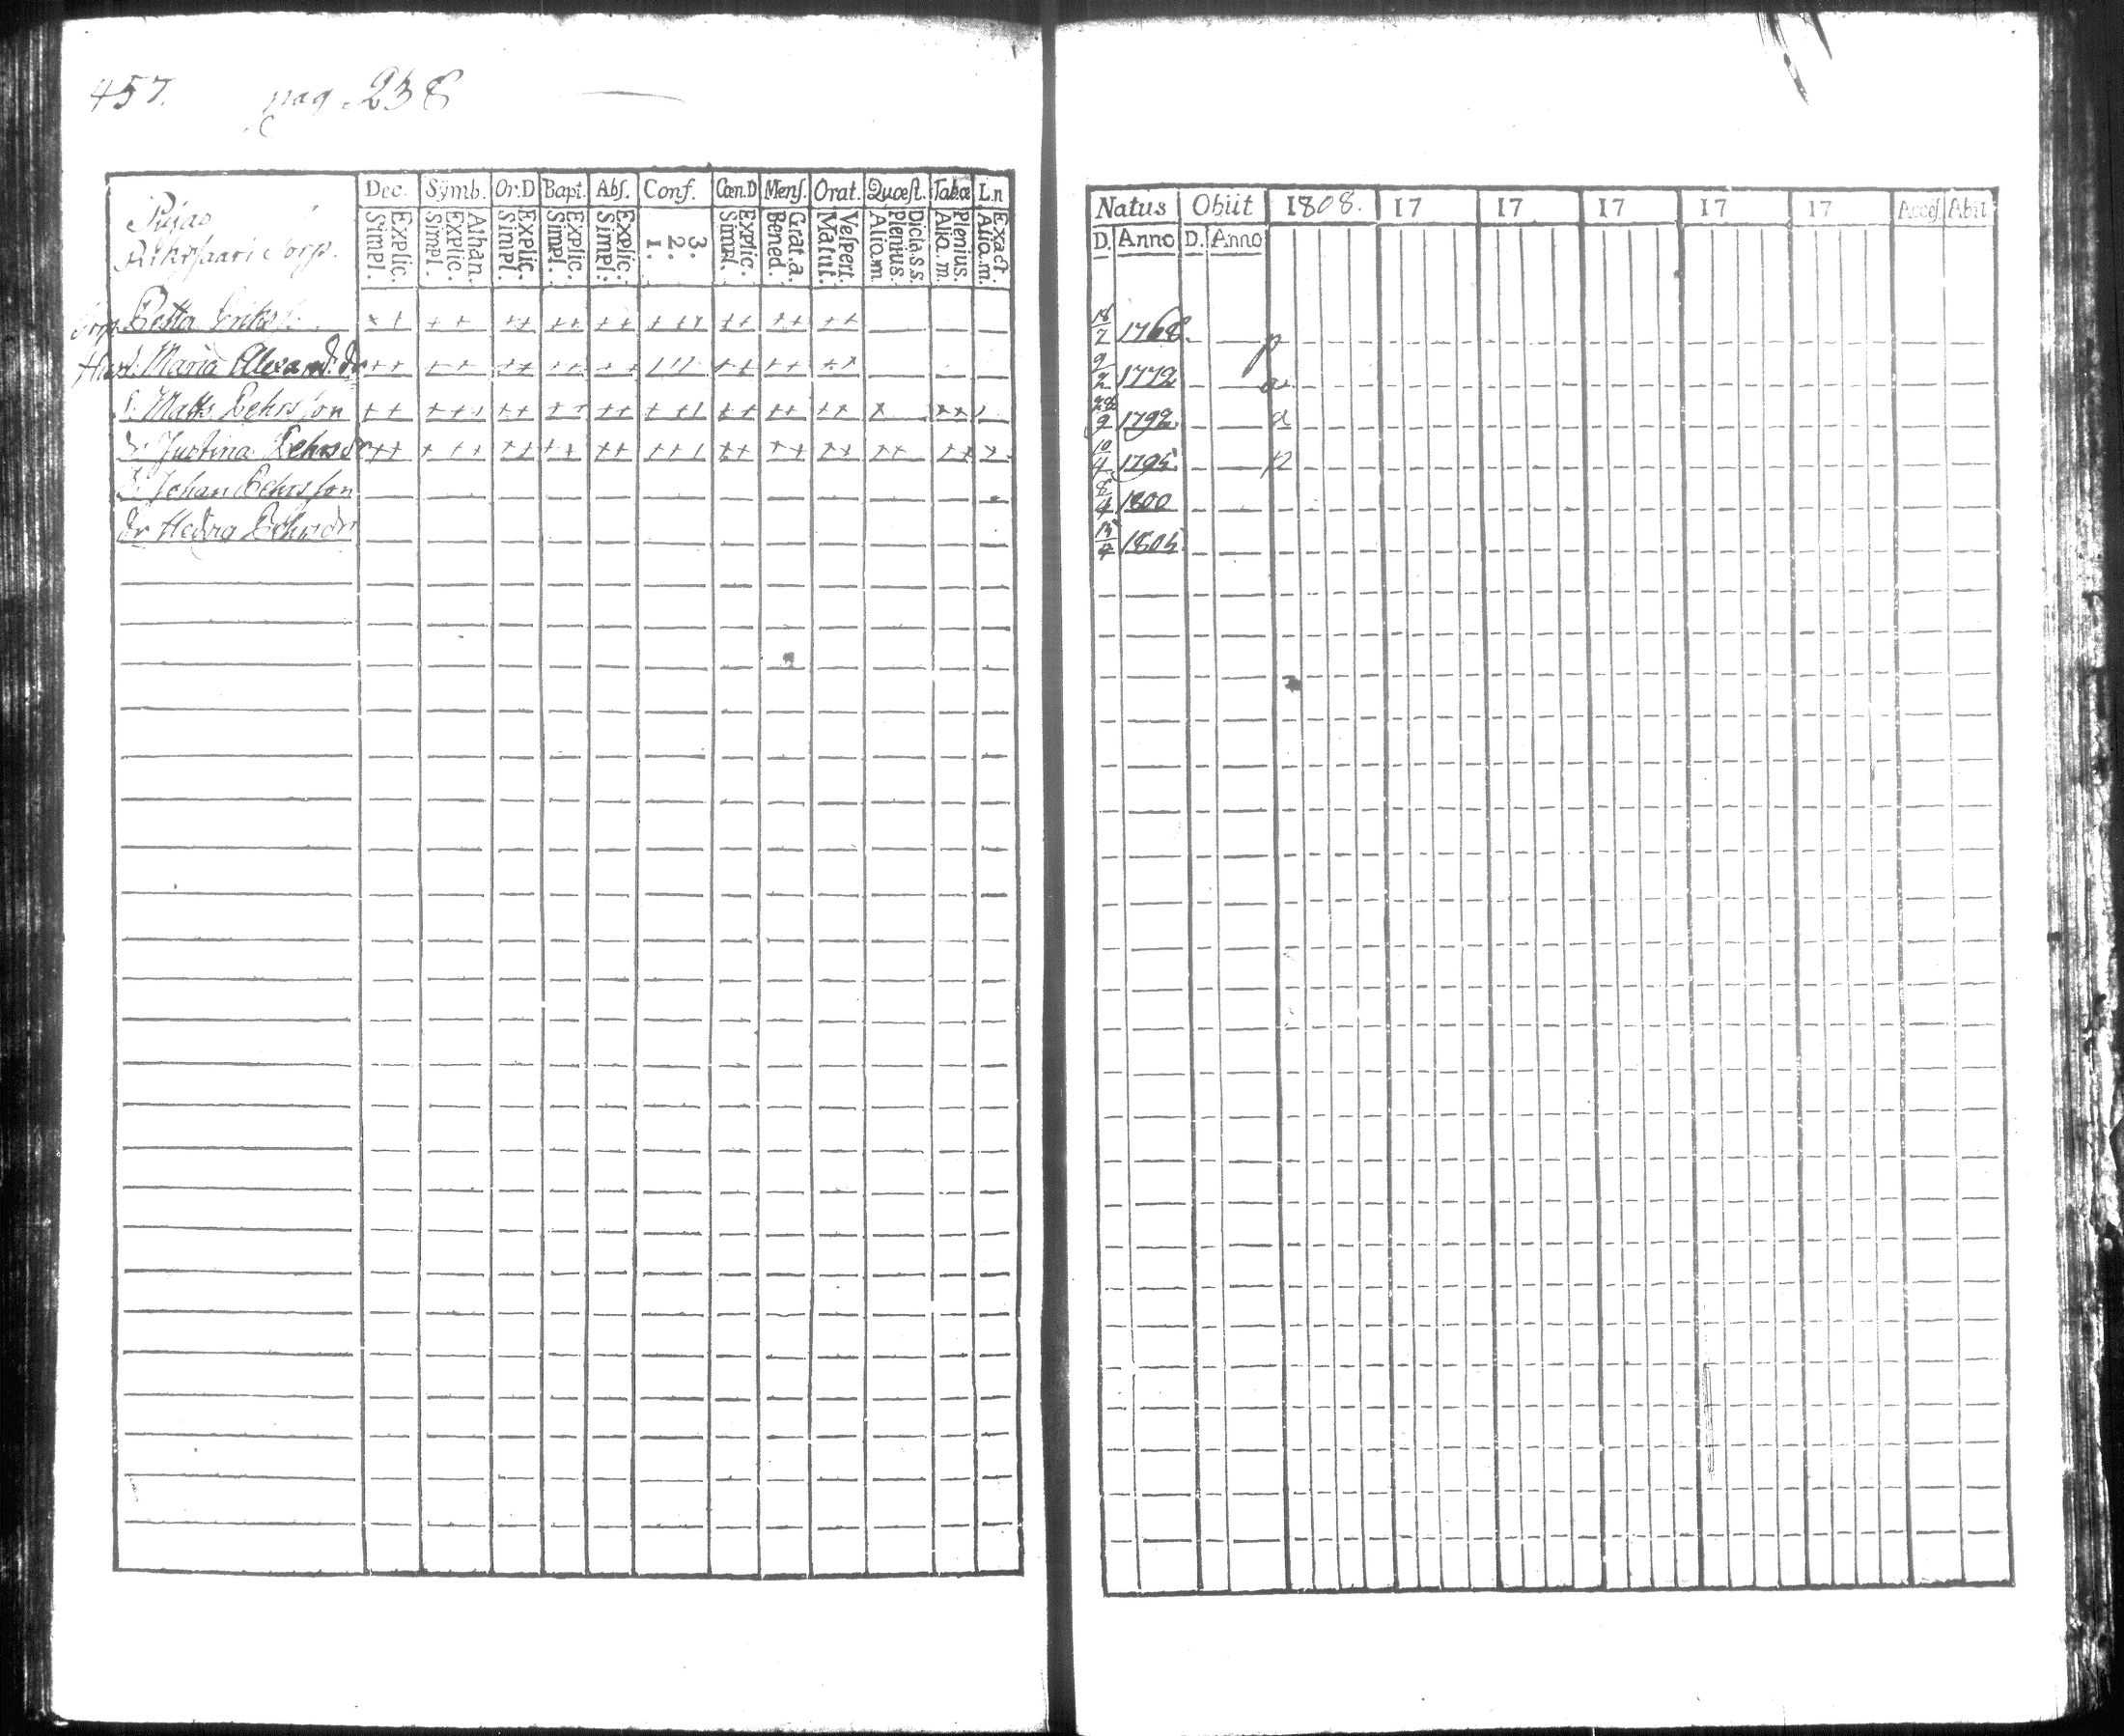 457. pag. 238
Dec. Symb. Or.D Bapt. Abſ. Conf. Cœn.D Menſ. Orat. Quœſt. Tab.œ L.n
Explic. Simpl. Athan. Explic. Simpl. Explic. Simpl. Explic. Simpl. Explic. Simpl. 3. 2. 1. Explic. Simpl. Grat.a. Bened. Veſpert. Matut. Dicta.s.s. Plenius. Alio.m Plenius. Alio.m. Exact. Alio.m.
Torp.
Maria Alexand. dr
S. Matts Pehrsson
D. Justina Pehrsdr
S. Johan Pehrsson
dr Hedvig Pehrsdr
Natus Obiit 1808. 17 17 17 17 17 Acceſ. Abiit
D. Anno D. Anno
18/7 1768. p
9/2 1772 a
28/9 1792 a
10/4 1795 p
8/4 1800
13/4 1805